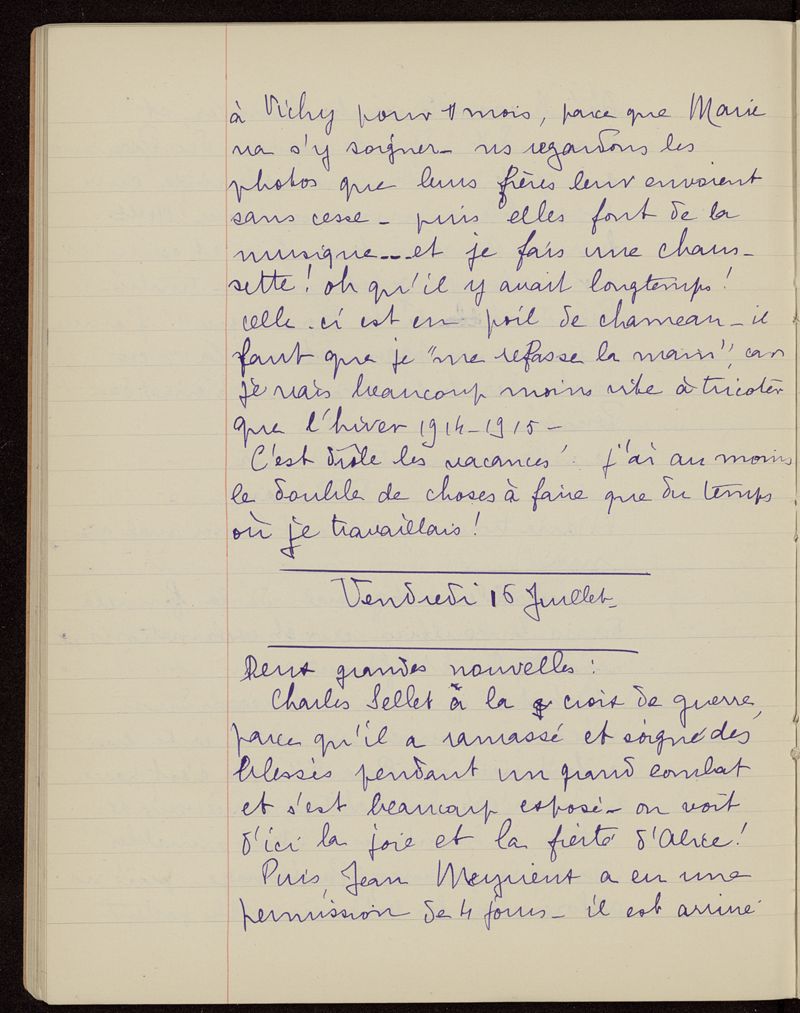 à Vichy pour 1 mois, parce que Marie
va s'y soigner_ ns regardons les
photos que leurs frères leur envoient
sans cesse _ puis elles font de la
musique...et je fais une chaus-
sette ! oh qu'il y avait longtemps !
celle-ci est en poil de chameau _ il
faut que je "me refasse la main", car
je vais beaucoup moins vite à tricoter
que l'hiver 1914-1915 _
C'est drôle les vacances ! j'ai au moins
le double de choses à faire que du temps
où je travaillais !
Vendredi 16 Juillet_
Deux grandes nouvelles :
Charles Sellet à la croix de guerre,
parce qu'il a ramassé et soigné des
blessés pendant un grand combat
et s'est beaucoup exposé _ on voit
d'ici la joie et la fierté d'Alice !
Puis, Jean Meynient a eu une
permission de 4 jours _ il est arrivé